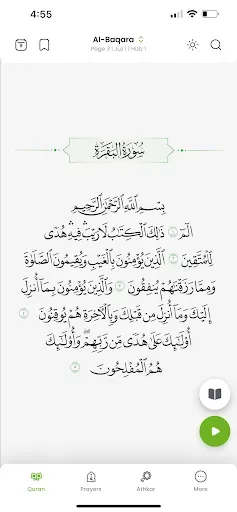 4:55
Al-Baqara
Page 2 | Juz 1 | Hizb 1
سُورَةُ الْبَقَرَةِ
بِسْمِ اللَّهِ الرَّحْمَٰنِ الرَّحِيمِ
الٓمٓ ١ ذَٰلِكَ الْكِتَابُ لَا رَيْبَ ۛ فِيهِ ۛ هُدًى
لِّلْمُتَّقِينَ ٢ الَّذِينَ يُؤْمِنُونَ بِالْغَيْبِ وَيُقِيمُونَ الصَّلَاةَ
وَمِمَّا رَزَقْنَاهُمْ يُنفِقُونَ ٣ وَالَّذِينَ يُؤْمِنُونَ بِمَا أُنزِلَ
إِلَيْكَ وَمَا أُنزِلَ مِن قَبْلِكَ وَبِالْآخِرَةِ هُمْ يُوقِنُونَ ٤
أُولَٰئِكَ عَلَىٰ هُدًى مِّن رَّبِّهِمْ ۖ وَأُولَٰئِكَ
هُمُ الْمُفْلِحُونَ ٥
Quran
Prayers
Athkar
More